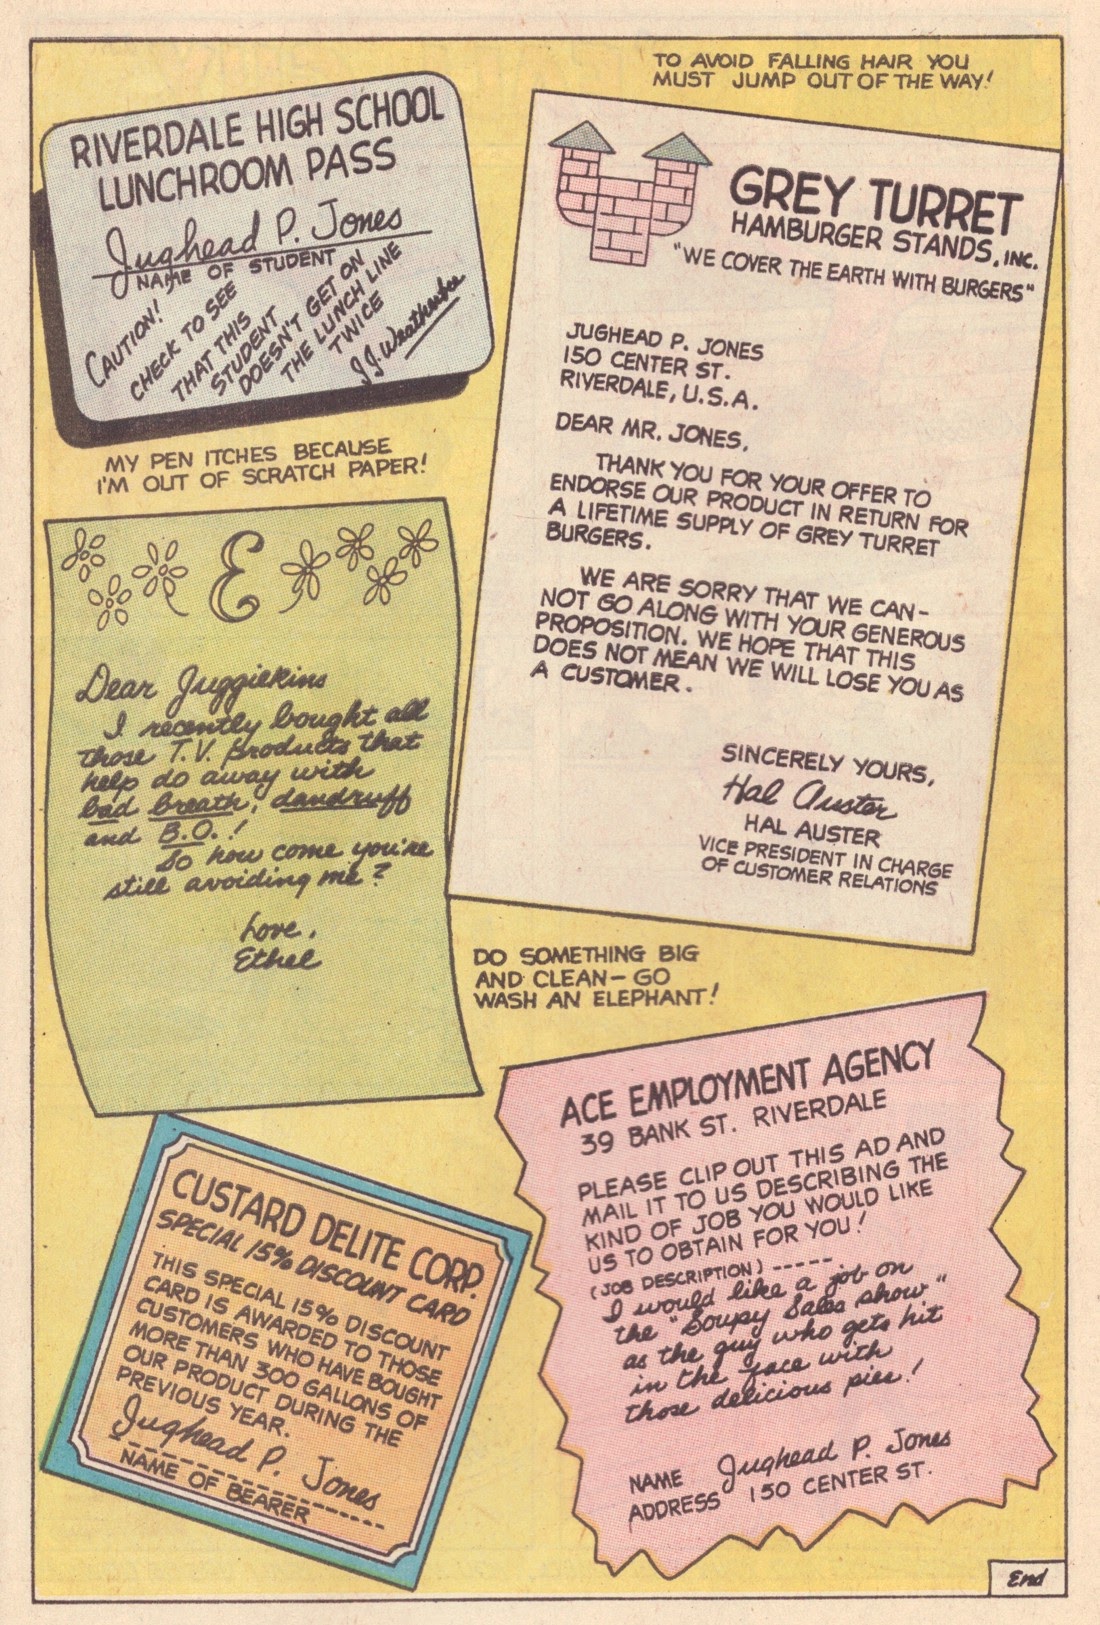 TO AVOID FALLING HAIR YOU
MUST JUMP OUT OF THE WAY!
RIVERDALE HIGH SCHOOL
LUNCHROOM PASS
Jughead P. Jones
NAME OF STUDENT
CAUTION!
CHECK TO SEE
THAT THIS
STUDENT
DOESN'T GET ON
THE LUNCH LINE
TWICE
J.J. Weatherbee
MY PEN ITCHES BECAUSE
I'M OUT OF SCRATCH PAPER!
GREY TURRET
HAMBURGER STANDS, INC.
"WE COVER THE EARTH WITH BURGERS"
JUGHEAD P. JONES
150 CENTER ST.
RIVERDALE, U.S.A.
DEAR MR. JONES,
THANK YOU FOR YOUR OFFER TO
ENDORSE OUR PRODUCT IN RETURN FOR
A LIFETIME SUPPLY OF GREY TURRET
BURGERS.
WE ARE SORRY THAT WE CAN-
NOT GO ALONG WITH YOUR GENEROUS
PROPOSITION. WE HOPE THAT THIS
DOES NOT MEAN WE WILL LOSE YOU AS
A CUSTOMER.
SINCERELY YOURS,
Hal Auster
HAL AUSTER
VICE PRESIDENT IN CHARGE
OF CUSTOMER RELATIONS
E
Dear Juggiekins
I recently bought all
those T.V. products that
help do away with
bad breath, dandruff
and B.O.!
So how come you're
still avoiding me?
Love,
Ethel
DO SOMETHING BIG
AND CLEAN—GO
WASH AN ELEPHANT!
CUSTARD DELITE CORP.
SPECIAL 15% DISCOUNT CARD
THIS SPECIAL 15% DISCOUNT
CARD IS AWARDED TO THOSE
CUSTOMERS WHO HAVE BOUGHT
MORE THAN 300 GALLONS OF
OUR PRODUCT DURING THE
PREVIOUS YEAR.
Jughead P. Jones
NAME OF BEARER
ACE EMPLOYMENT AGENCY
39 BANK ST. RIVERDALE
PLEASE CLIP OUT THIS AD AND
MAIL IT TO US DESCRIBING THE
KIND OF JOB YOU WOULD LIKE
US TO OBTAIN FOR YOU!
(JOB DESCRIPTION) -----
I would like a job on
the "Soupy Sales show"
as the guy who gets hit
in the face with
those delicious pies!
NAME Jughead P. Jones
ADDRESS 150 CENTER ST.
End